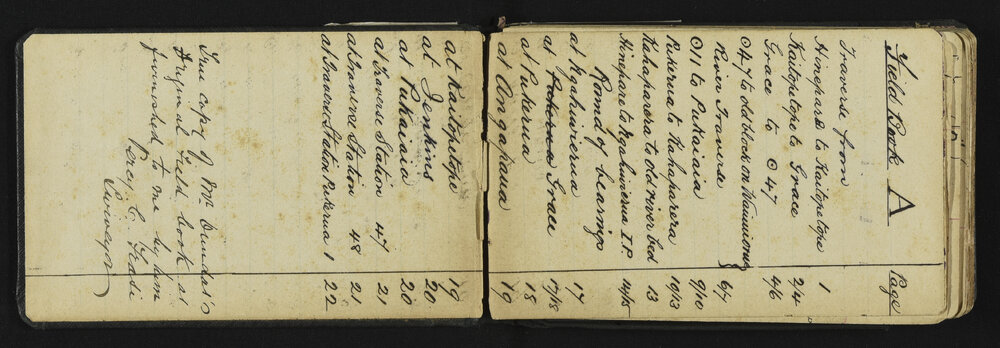 Field Book A
Page
Traverse from
Hinepare to Kaitopetope 1
Kaitopetope to Grace 2/4
Grace to O 47 4/6
O 47 to old block on
River Traverse 6/7
O 11 to Pukaiaia 9/10
Pukerua to Kahaparera 10/13
Kahaparera to old river bed 13
Hinepare to Ngahuwerua T.P. 14/15
Round of bearings
at Ngahuwerua 17
at Grace 17/18
at Pukerua 18
at Ongapaua 19
at Kaitopetope 19
at Jenkins 20
at Pukaiaia 20
at Traverse Station 47 21
at Traverse Station 48 21
at Traverse Station Pukerua 1 22
True copy of Mr Dundas's
Original Field book as
furnished to me by him
Percy E.
Surveyor